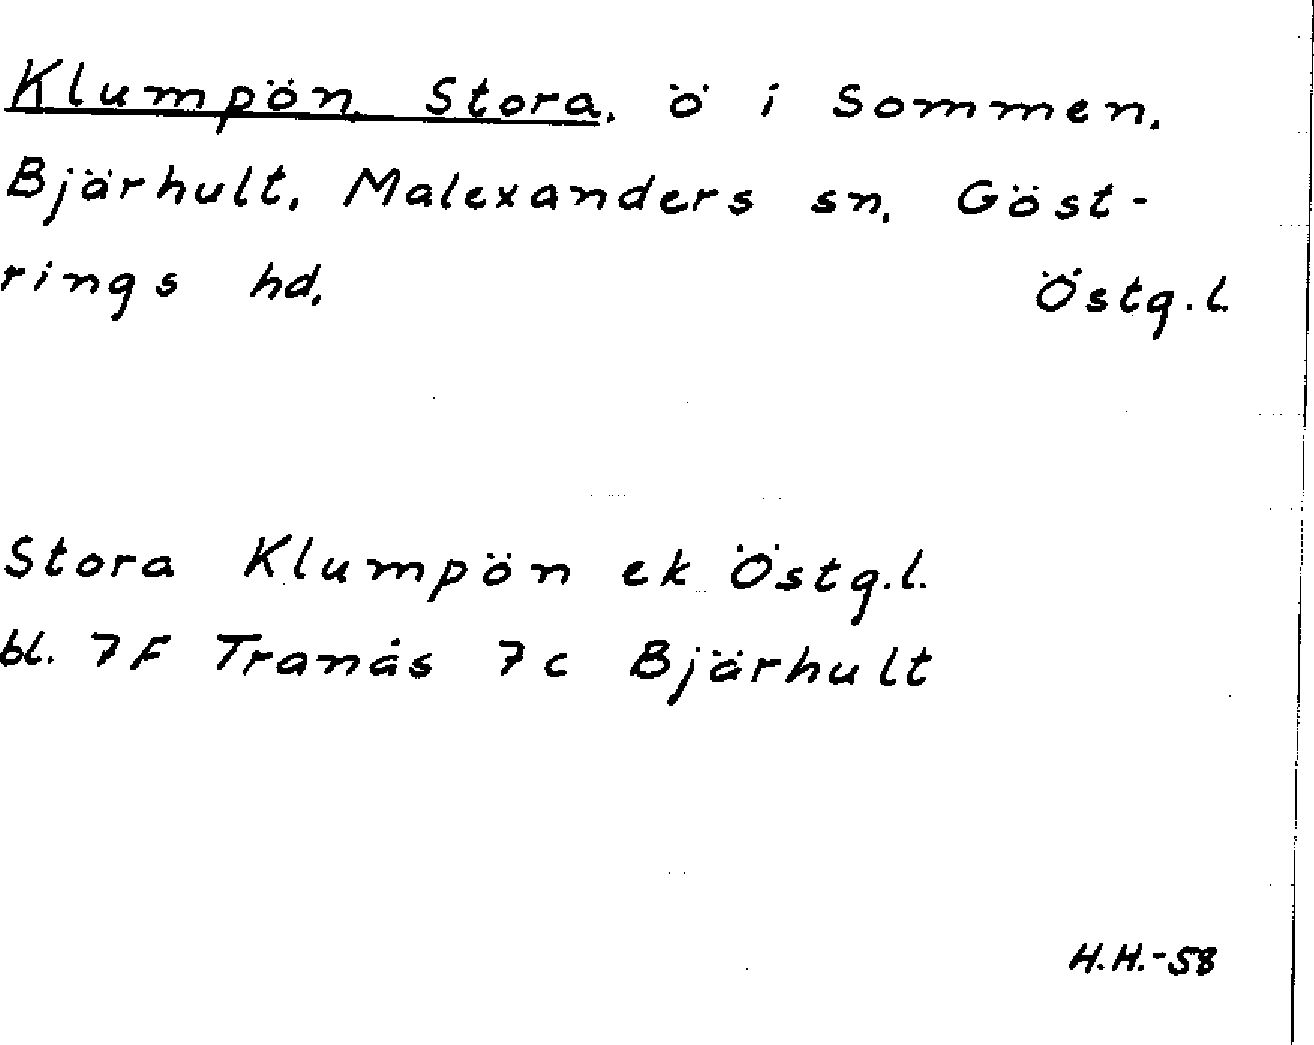 Klumpön, Stora, ö i Sommen,
Bjärhult, Malexanders sn, Göst-
rings hd, Östg.l.
Stora Klumpön ek Östg.l.
bl. 7F Tranås 7c Bjärhult
H.H.-58